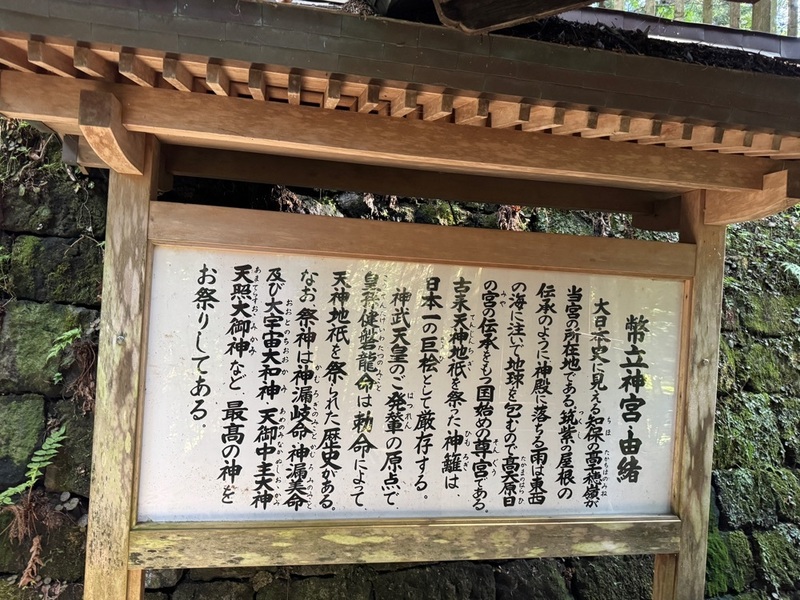 幣立神宮・由緒
大日本史に見える知保の高千穂嶺が
当宮の所在地である。筑紫の屋根の
伝承のように神殿に落ちる雨は東西
の海に注いで地球を包むので高天原日
の宮の伝承をもつ国始めの尊宮である。
古来天神地祇を祭った神籬は、
日本一の巨桧として厳存する。
神武天皇のご発輦の原点で、
皇孫健磐龍命は勅命によって
天神地祇を祭られた歴史がある。
なお、祭神は神漏岐命・神漏美命
及び大宇宙大和神 天御中主大神
天照大御神など、最高の神を
お祭りしてある。